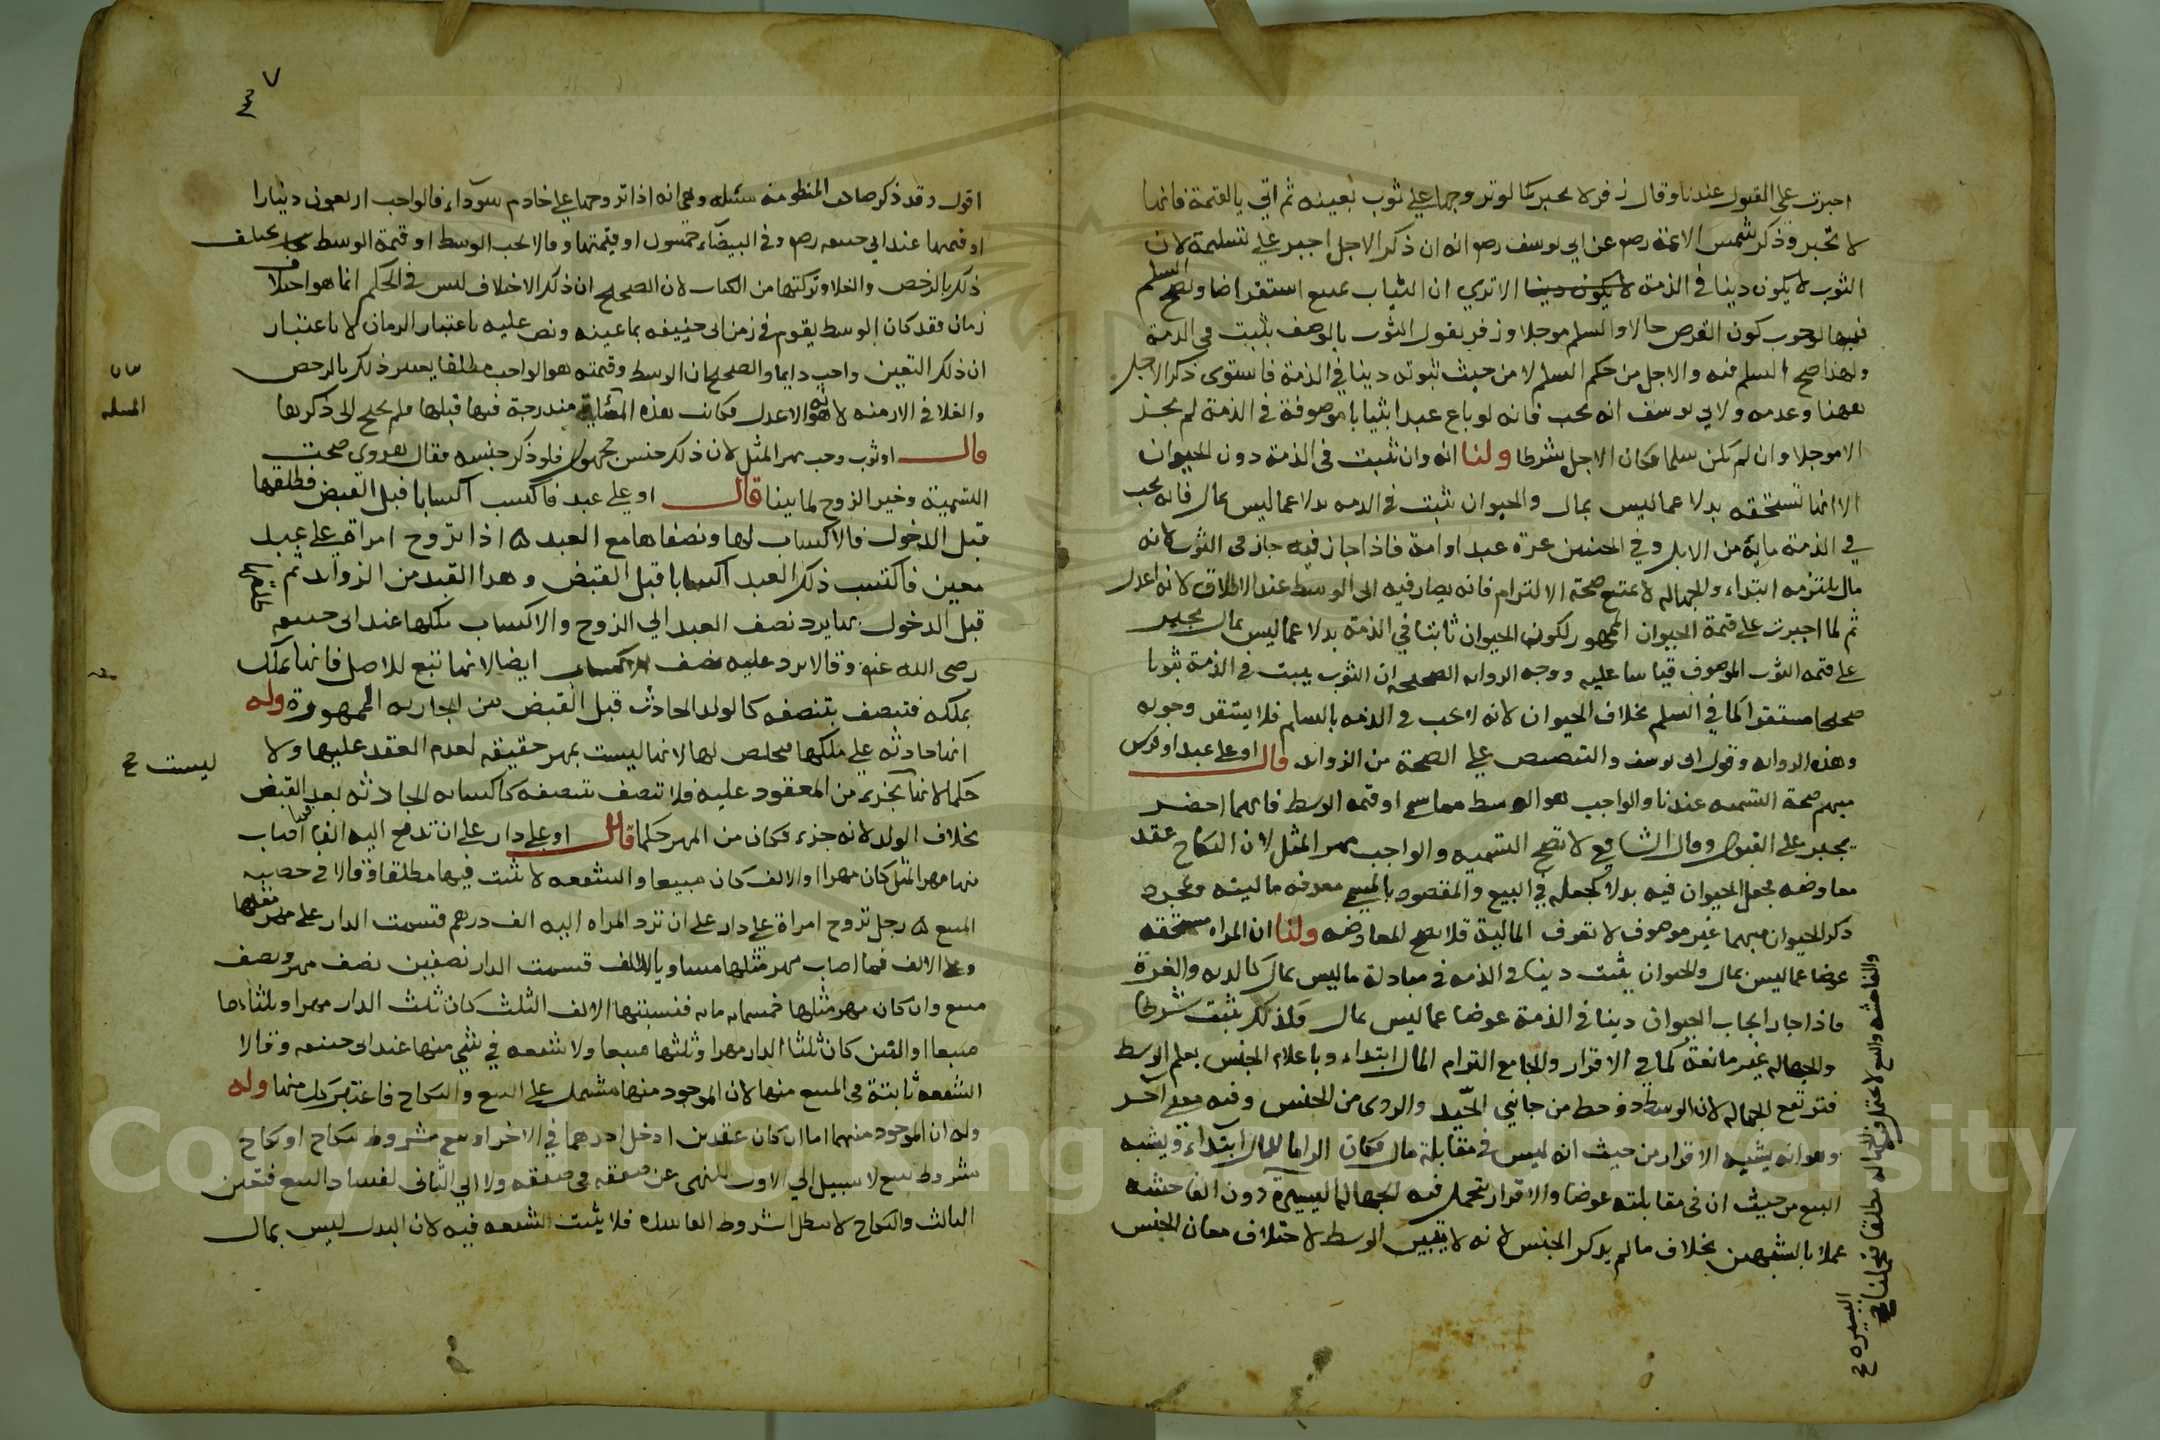 اجبرت على القبول عندنا وقال زفر لا يجبر كما لو تزوجها على ثوب بعينه ثم اتى بالقيمة فانها
لا تجبر وذكر شمس الائمة رحم عن ابي يوسف رحم انه ان ذكر الاجل اجبر على تسليمه لان
الثوب لا يكون دينا في الذمة لا يكون دينا الا ترى ان الثياب يمتنع استقراضا ويصح السلم
فيها لوجوب كون القرض حالا والسلم موجلا وزفر يقول الثوب بالوصف يثبت في الذمة
ولهذا صح السلم فيه والاجل من حكم السلم لا من حيث ثبوته دينا في الذمة فاستوى ذكر الاجل
ههنا وعدمه ولابي يوسف انه يجب فانه لو باع عبدا بثياب موصوفة في الذمة لم يجز
الا موجلا وان لم يكن سلما فكان الاجل شرطا ولنا انه وان ثبت في الذمة دون الحيوان
الا انها تستحقه بدلا عما ليس بمال والحيوان يثبت في الذمه بدلا عما ليس بمال فانه يجب
في الذمة ماية من الابل وفي الجنين غرة عبد او امة فاذا جاز فيه جاز في الثوب لانه
مال يلتزمه ابتداء والجهالة لا تمنع صحة الالتزام فانه يصار فيه الى الوسط عند الاطلاق لانه اعدل
ثم لما اجبرت على قيمة الحيوان الممهور لكون الحيوان ثابتا في الذمة بدلا عما ليس بمال يجبر
على قيمه الثوب الموصوف قياسا عليه ووجه الروايه الصحيحه ان الثوب يثبت في الذمة ثبوتا
صحيحا مستقرا كما في السلم بخلاف الحيوان لانه لا يجب في الذمه بالسلم فلا يستقر وجوبه
وهذه الروايه وقول ابى يوسف والتنصيص على الصحة من الزوايد قال او على عبد او فرس
مبهم صحة التسميه عندنا والواجب هو الوسط مما سمى او قيمه الوسط فايهما احضر
يجبر على القبول وقال الشافعي لا تصح التسميه والواجب مهر المثل لان النكاح عقد
معاوضه فجعل الحيوان فيه بدلا كجعله في البيع والمقصود بالمسمى معرفه ماليته وبمجرد
ذكر الحيوان مبهما غير موصوف لا تعرف المالية فلا يصح المعاوضه ولنا ان المراه تستحقه
عوضا عما ليس بمال والحيوان يثبت دينا في الذمه في مبادلة ما ليس بمال كالديه والغرة
فاذا جاز ايجاب الحيوان دينا في الذمة عوضا عما ليس بمال فلذلك يثبت شرطا
والجهاله غير مانعة كما في الاقرار والجامع التزام المال ابتداء وباعلام الجنس يعلم الوسط
فترتفع الجهالة لان الوسط ذو حظ من جانبي الجيد والردى من الجنس وفيه معنى آخر
وهو انه يشبه الاقرار من حيث انه ليس في مقابلة مال فكان الزاما للمال ابتداء ويشبه
البيع من حيث ان في مقابلته عوضا والاقرار يتحمل فيه الجهالة اليسيرة دون الفاحشه
عملا بالشبهين بخلاف ما لم يذكر الجنس لانه لا يتبين الوسط لاختلاف معاني الجنس
والفاحشه والبيع لا يحتمل الجهاله مطلقا فجعلنا
اليسيره صح
٤٧
اقول وقد ذكر صاحب المنظومة مسئلة وهي انه اذا تزوجها على خادم سوداء فالواجب اربعون دينارا
او قيمتها عند ابي حنيفه رحم وفي البيضاء خمسون او قيمتها وقالا يجب الوسط او قيمة الوسط يختلف
ذلك بالرخص والغلا وتركتها من الكتاب لان الصحيح ان ذكر الاختلاف ليس في الحكم انما هو اختلاف
زمان فقد كان الوسط يقوم في زمن ابى حنيفه بما عينه ونص عليه باعتبار الزمان لا باعتبار
ان ذلك التعيين واجب دايما والصحيح ان الوسط وقيمته هو الواجب مطلقا يعتبر ذلك بالرخص
والغلا في الازمنه لانه هو الاعدل فكانت هذه المسئلة مندرجة فيها قبلها فلم يحتج الى ذكرها
بيان
المسله
قال او ثوب وجب مهر المثل لان ذلك جنس مجهول فلو ذكر جنسه فقال هروى صحت
التسمية وخير الزوج لما بينا قال او على عبد فاكتسب اكسابا قبل القبض فطلقها
قبل الدخول فالاكساب لها ونصفاها مع العبد ه اذا تزوج امراة على عبد
معين فاكتسب ذلك العبد اكسابا قبل القبض وهذا القيد من الزوايد ثم طلقها
قبل الدخول بها يرد نصف العبد الى الزوج والاكساب كلها عند ابى حنيفه
رضى الله عنه وقالا يرد عليه نصف الاكساب ايضا لانها تبع للاصل فانها تملك
بملكه فتنصف بتنصفه كالولد الحادث قبل القبض من الجاريه الممهورة وله
انها حادثه على ملكها فتخلص لها لانها ليست بمهر حقيقه لعدم العقد عليها ولا
ليست صح
حكما لانها بجزء من المعقود عليه فلا تنصف بتنصفه كاكسابه الحادثه بعد القبض
بخلاف الولد لانه جزء فكان من المهر حكما قال او على دار على ان تدفع اليه الفا فما اصاب
منها مهر المثل كان مهرا والالف كان مبيعا والشفعه لا تثبت فيها مطلقا وقالا في حصة
المبيع ه رجل تزوج امراة على دار على ان ترد المراه اليه الف درهم قسمت الدار على مهر مثلها
وعلى الالف فما اصاب مهر مثلها مساويا للالف قسمت الدار نصفين نصف مهر ونصف
مبيع وان كان مهر مثلها خمسمايه مايه فنسبتها الالف الثلث كان ثلث الدار مهرا وثلثاها
مبيعا او الفين كان ثلثا الدار مهرا وثلثها مبيعا ولا شفعه في شي منها عند ابى حنيفه وقالا
الشفعه ثابتة في المبيع منها لان الموجود منها مشتمل على البيع والنكاح فاعتبر كل منها وله
وله ان الموجود منهما اما ان كان عقدين ادخل احدهما في الاخر او بيع مشروط بنكاح او نكاح
مشروط ببيع لا سبيل الى الاول للنهى عن صفقه في صفقه ولا الى الثانى لفساد البيع فتعين
الثالث والنكاح لا يبطل بالشروط الفاسده فلا يثبت الشفعه فيه لان البدل ليس بمال
Copyright © King Saud University